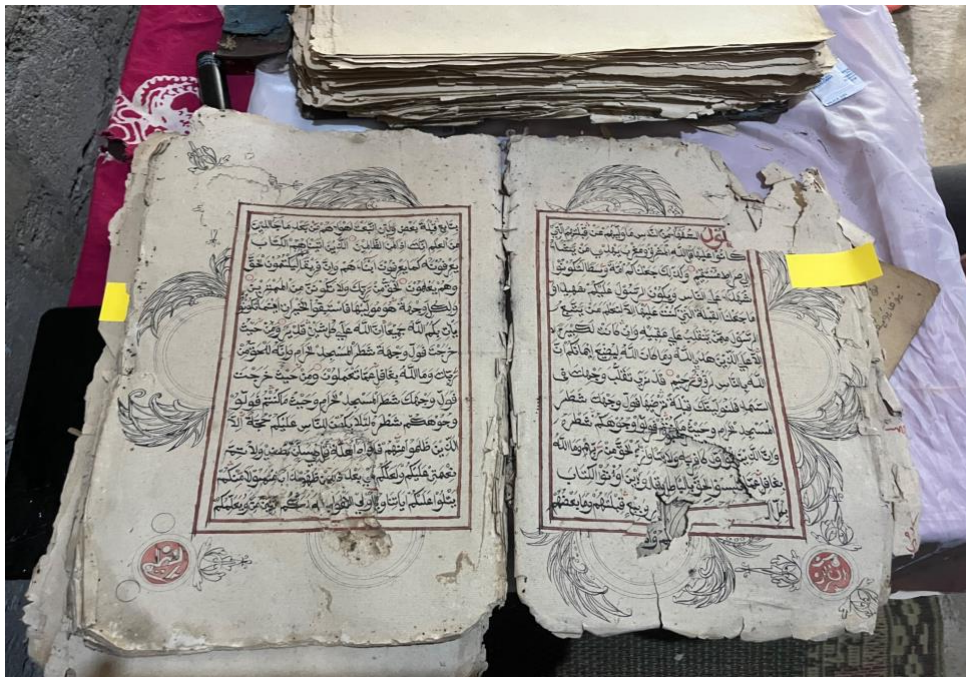 سيقول السفهاء من الناس ما وليهم عن قبلتهم التي
كانوا عليها قل لله المشرق والمغرب يهدي من يشاء
الى صراط مستقيم وكذلك جعلناكم امة وسطا لتكونوا
شهداء على الناس ويكون الرسول عليكم شهيدا و
ما جعلنا القبلة التي كنت عليها الا لنعلم من يتبع ا
لرسول ممن ينقلب على عقبيه وان كانت لكبيرة ا
لا على الذين هدى الله وما كان الله ليضيع ايمانكم ان
الله بالناس لرؤف رحيم قد نرى تقلب وجهك في
السماء فلنولينك قبلة ترضيها فول وجهك شطر
المسجد الحرام وحيث ما كنتم فولوا وجوهكم شطره
وان الذين الحق من ربهم وما الله
بغافل عما الذين اوتوا الكتاب
بكل قبلتهم وما بعضهم
بتابع قبلة بعض ولئن اتبعت اهواءهم من بعد ما جاءك
من العلم انك اذا لمن الظالمين الذين اتيناهم الكتاب
يعرفونه كما يعرفون ابناءهم وان فريقا ليكتمون الحق
وهم يعلمون الحق من ربك ولا تكونن من الممترين
ولكل وجهة هو موليها فاستبقوا الخيرات اينما تكونوا
يات بكم الله جميعا ان الله على كل شئ قدير ومن حيث
خرجت فول وجهك شطر المسجد الحرام وانه للحق من
ربك وما الله بغافل عما تعملون ومن حيث خرجت
فول وجهك شطر المسجد الحرام وحيث ما كنتم فولوا
وجوهكم شطره لئلا يكون للناس عليكم حجة الا
الذين ظلموا منهم ولاتم
نعمتي عليكم ولعلكم منكم
يتلوا عليكم اياتنا ويعلمكم